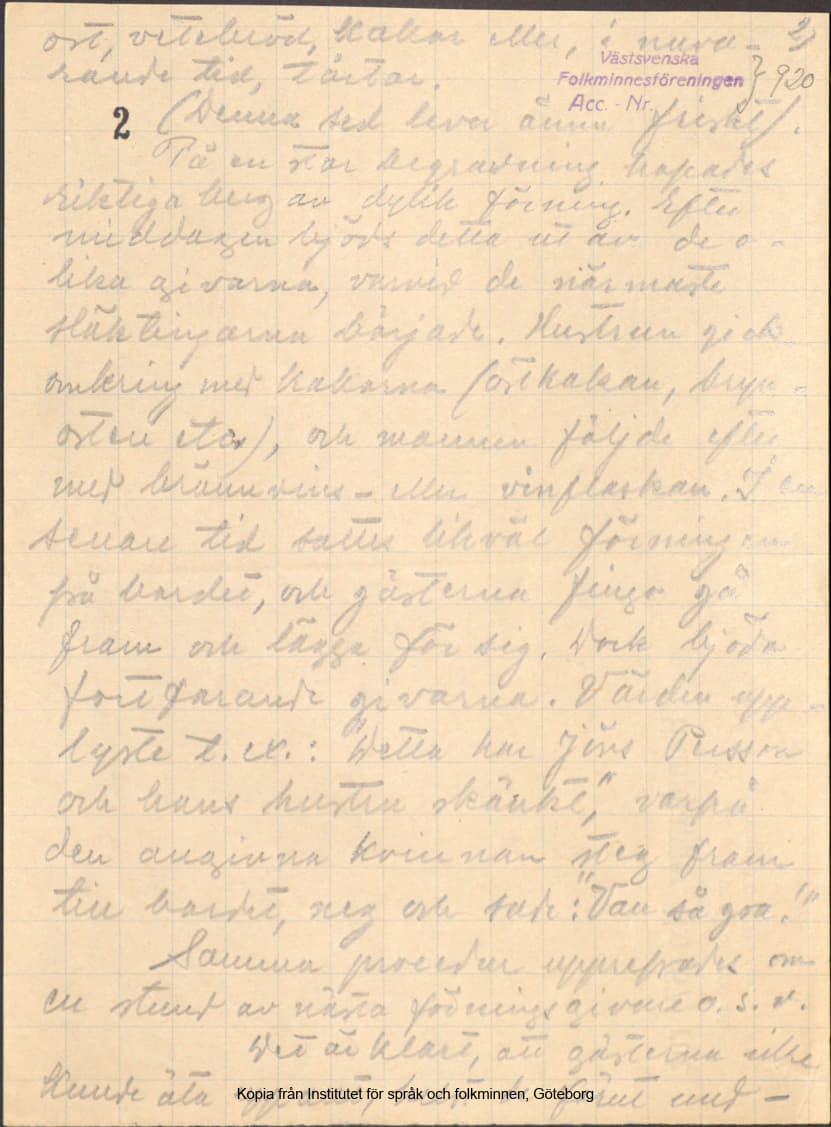 ost, vetebröd, kakor eller, i nuva- 2)
rande tid, tårtor.
Västsvenska
Folkminnesföreningen } 920
Acc. - Nr.
2 (Denna sed lever ännu friskt).
På en stor begravning hopades
riktiga berg av dylik förning. Efter
middagen bjöds detta ut av de o-
lika givarna, varvid de närmaste
släktingarna började. Hustrun gick
omkring med kakorna (ostkakan, bryn-
osten etc.), och mannen följde efter
med brännvins- eller vinflaskan. I en
senare tid sattes likväl förningen
på bordet, och gästerna fingo gå
fram och lägga för sig. Dock bjödo
fortfarande givarna. Värden upp-
lyste t. ex.: "Detta har Jöns Persson
och hans hustru skänkt," varpå
den angivna kvinnan steg fram
till bordet, neg och sade: "Van så goa!"
Samma procedur upprepades om
en stund av nästa förningsgivare o. s. v.
Det är klart, att gästerna icke
kunde äta allt, förut und-
Kopia från Institutet för språk och folkminnen, Göteborg